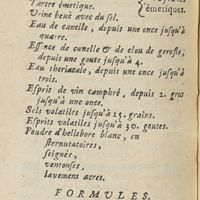 Tartre émetique.
émetiques.
Urine beuë avec du sel.
Eau de canelle, depuis une once jusqu'à
quatre.
Essence de canelle & de clou de gerofle,
depuis une goute jusqu'à 4.
Eau theriacale, depuis une once jusqu'à
trois.
Esprit de vin camphré, depuis 2. gros
jusqu'à une once.
Sels volatiles jusqu'à 25. grains.
Esprits volatiles jusqu'à 30. goutes.
Poudre d'hellebore blanc, en
sternutatoires,
saignée,
ventouses,
lavemens acres.
FORMULES.